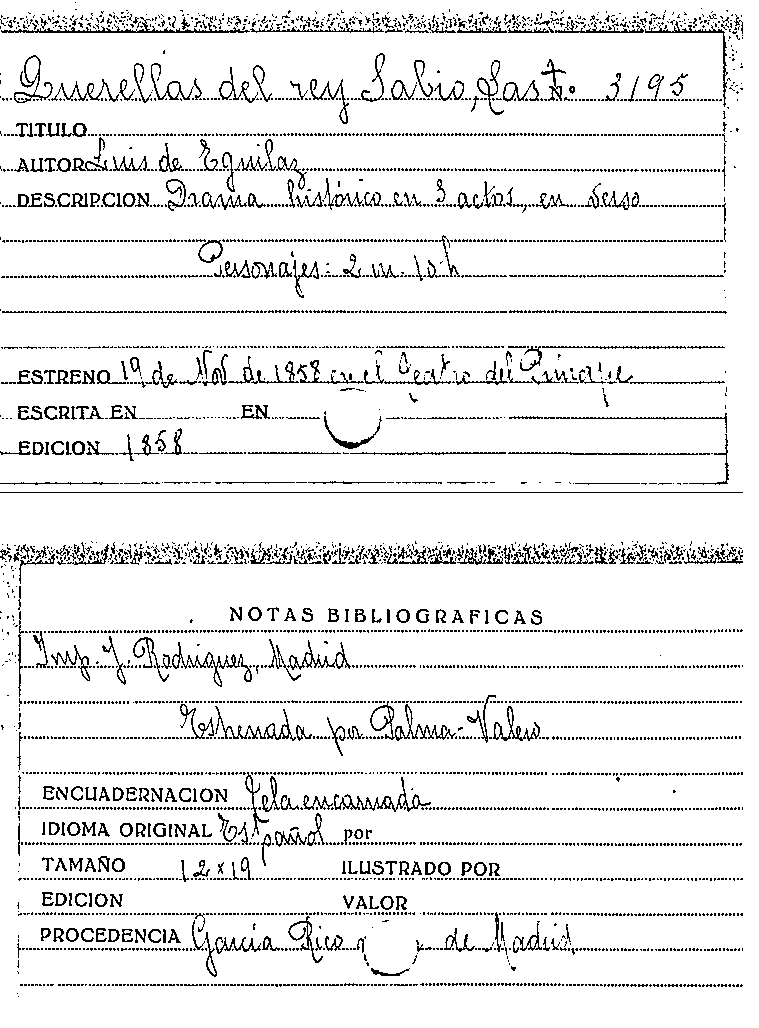 Querellas del rey Sabio, Las t. 3195
TITULO
AUTOR Luis de Eguilaz
DESCRIPCION Drama histórico en 3 actos, en verso
Personajes: 2 m. 10 h
ESTRENO 19 de Nov de 1858 en el Teatro del Principe
ESCRITA EN EN
EDICION 1858
NOTAS BIBLIOGRAFICAS
Imp. J. Rodriguez, Madrid
Estrenada por Palma-Valero
ENCUADERNACION Tela encarnada
IDIOMA ORIGINAL Español por
TAMAÑO 12 x 19 ILUSTRADO POR
EDICION VALOR
PROCEDENCIA García Rico de Madrid